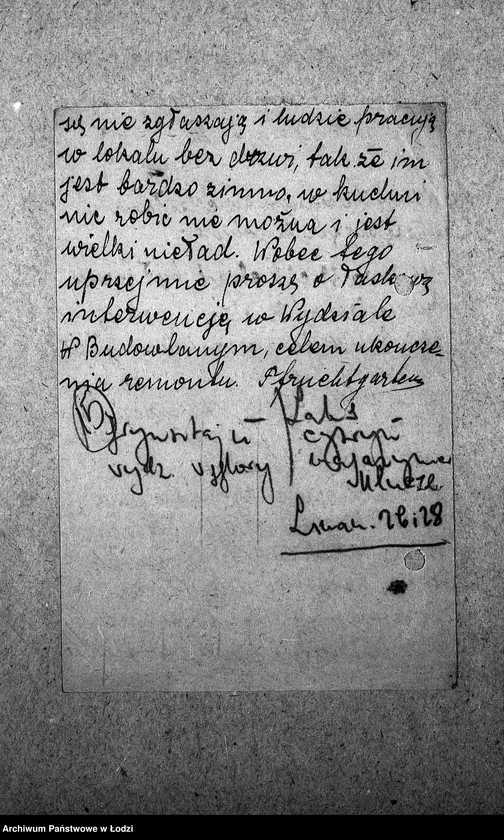 się nie zgłaszają i ludzie pracują
w lokalu bez drzwi, tak że im
jest bardzo zimno, w kuchni
nic robić nie można i jest
wielki nieład. Wobec tego
uprzejmie proszę o łaskawą
interwencję w Wydziale
Budowlanym, celem ukończe-
nia remontu. Fruchtgarten
wydz.
26 i 28
Archiwum Państwowe w Łodzi